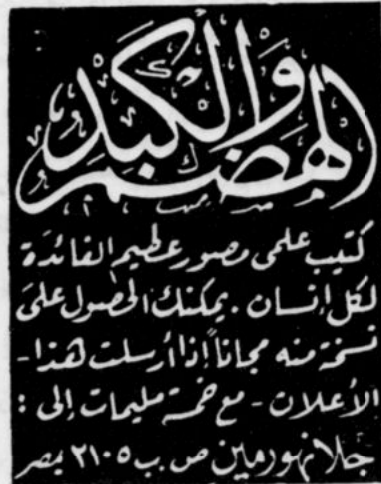 الهضم والكبد
كتيب علمى مصور عظيم الفائدة
لكل إنسان . يمكنك الحصول على
نسخة منه مجاناً إذا أرسلت هذا -
الأعلان - مع خمسة مليمات إلى :
جلانهورمين ص . ب ٢١٠٥ بمصر